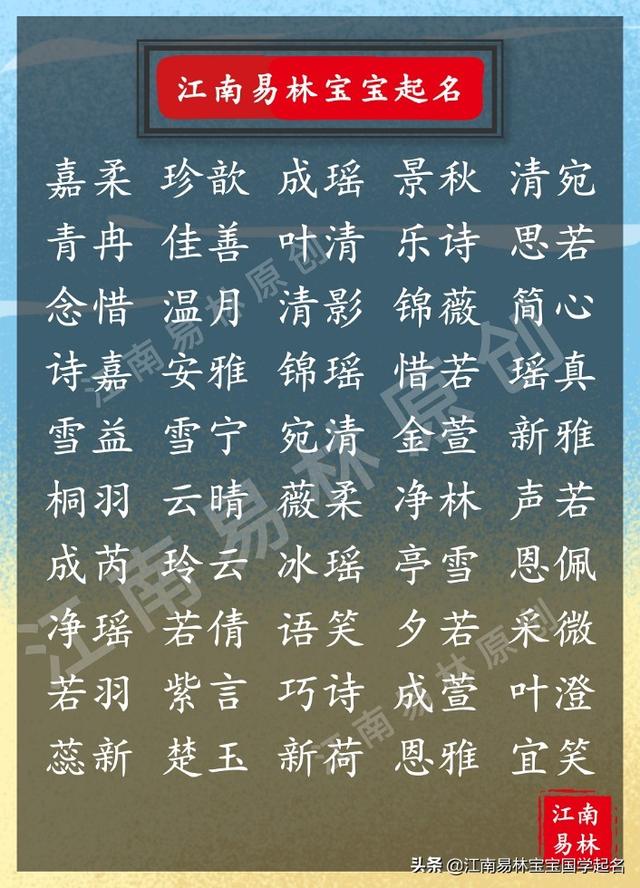 江南易林宝宝起名
嘉柔 珍歆 成瑶 景秋 清宛
青冉 佳善 叶清 乐诗 思若
念惜 温月 清影 锦薇 简心
诗嘉 安雅 锦瑶 惜若 瑶真
雪益 雪宁 宛清 金萱 新雅
桐羽 云晴 薇柔 净林 声若
成芮 玲云 冰瑶 亭雪 恩佩
净瑶 若倩 语笑 夕若 采微
若羽 紫言 巧诗 成萱 叶澄
蕊新 楚玉 新荷 恩雅 宜笑
江南易林原创
江南易林原创
江南易林原创
江南
易林
头条 @江南易林宝宝国学起名